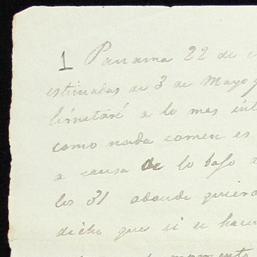 1 Panama 22 de
estimadas de 3 de Mayo y
limitaré a lo mas
como nada comen es
a causa de lo bajo
los 31 adonde quiera
dicho que si se hace